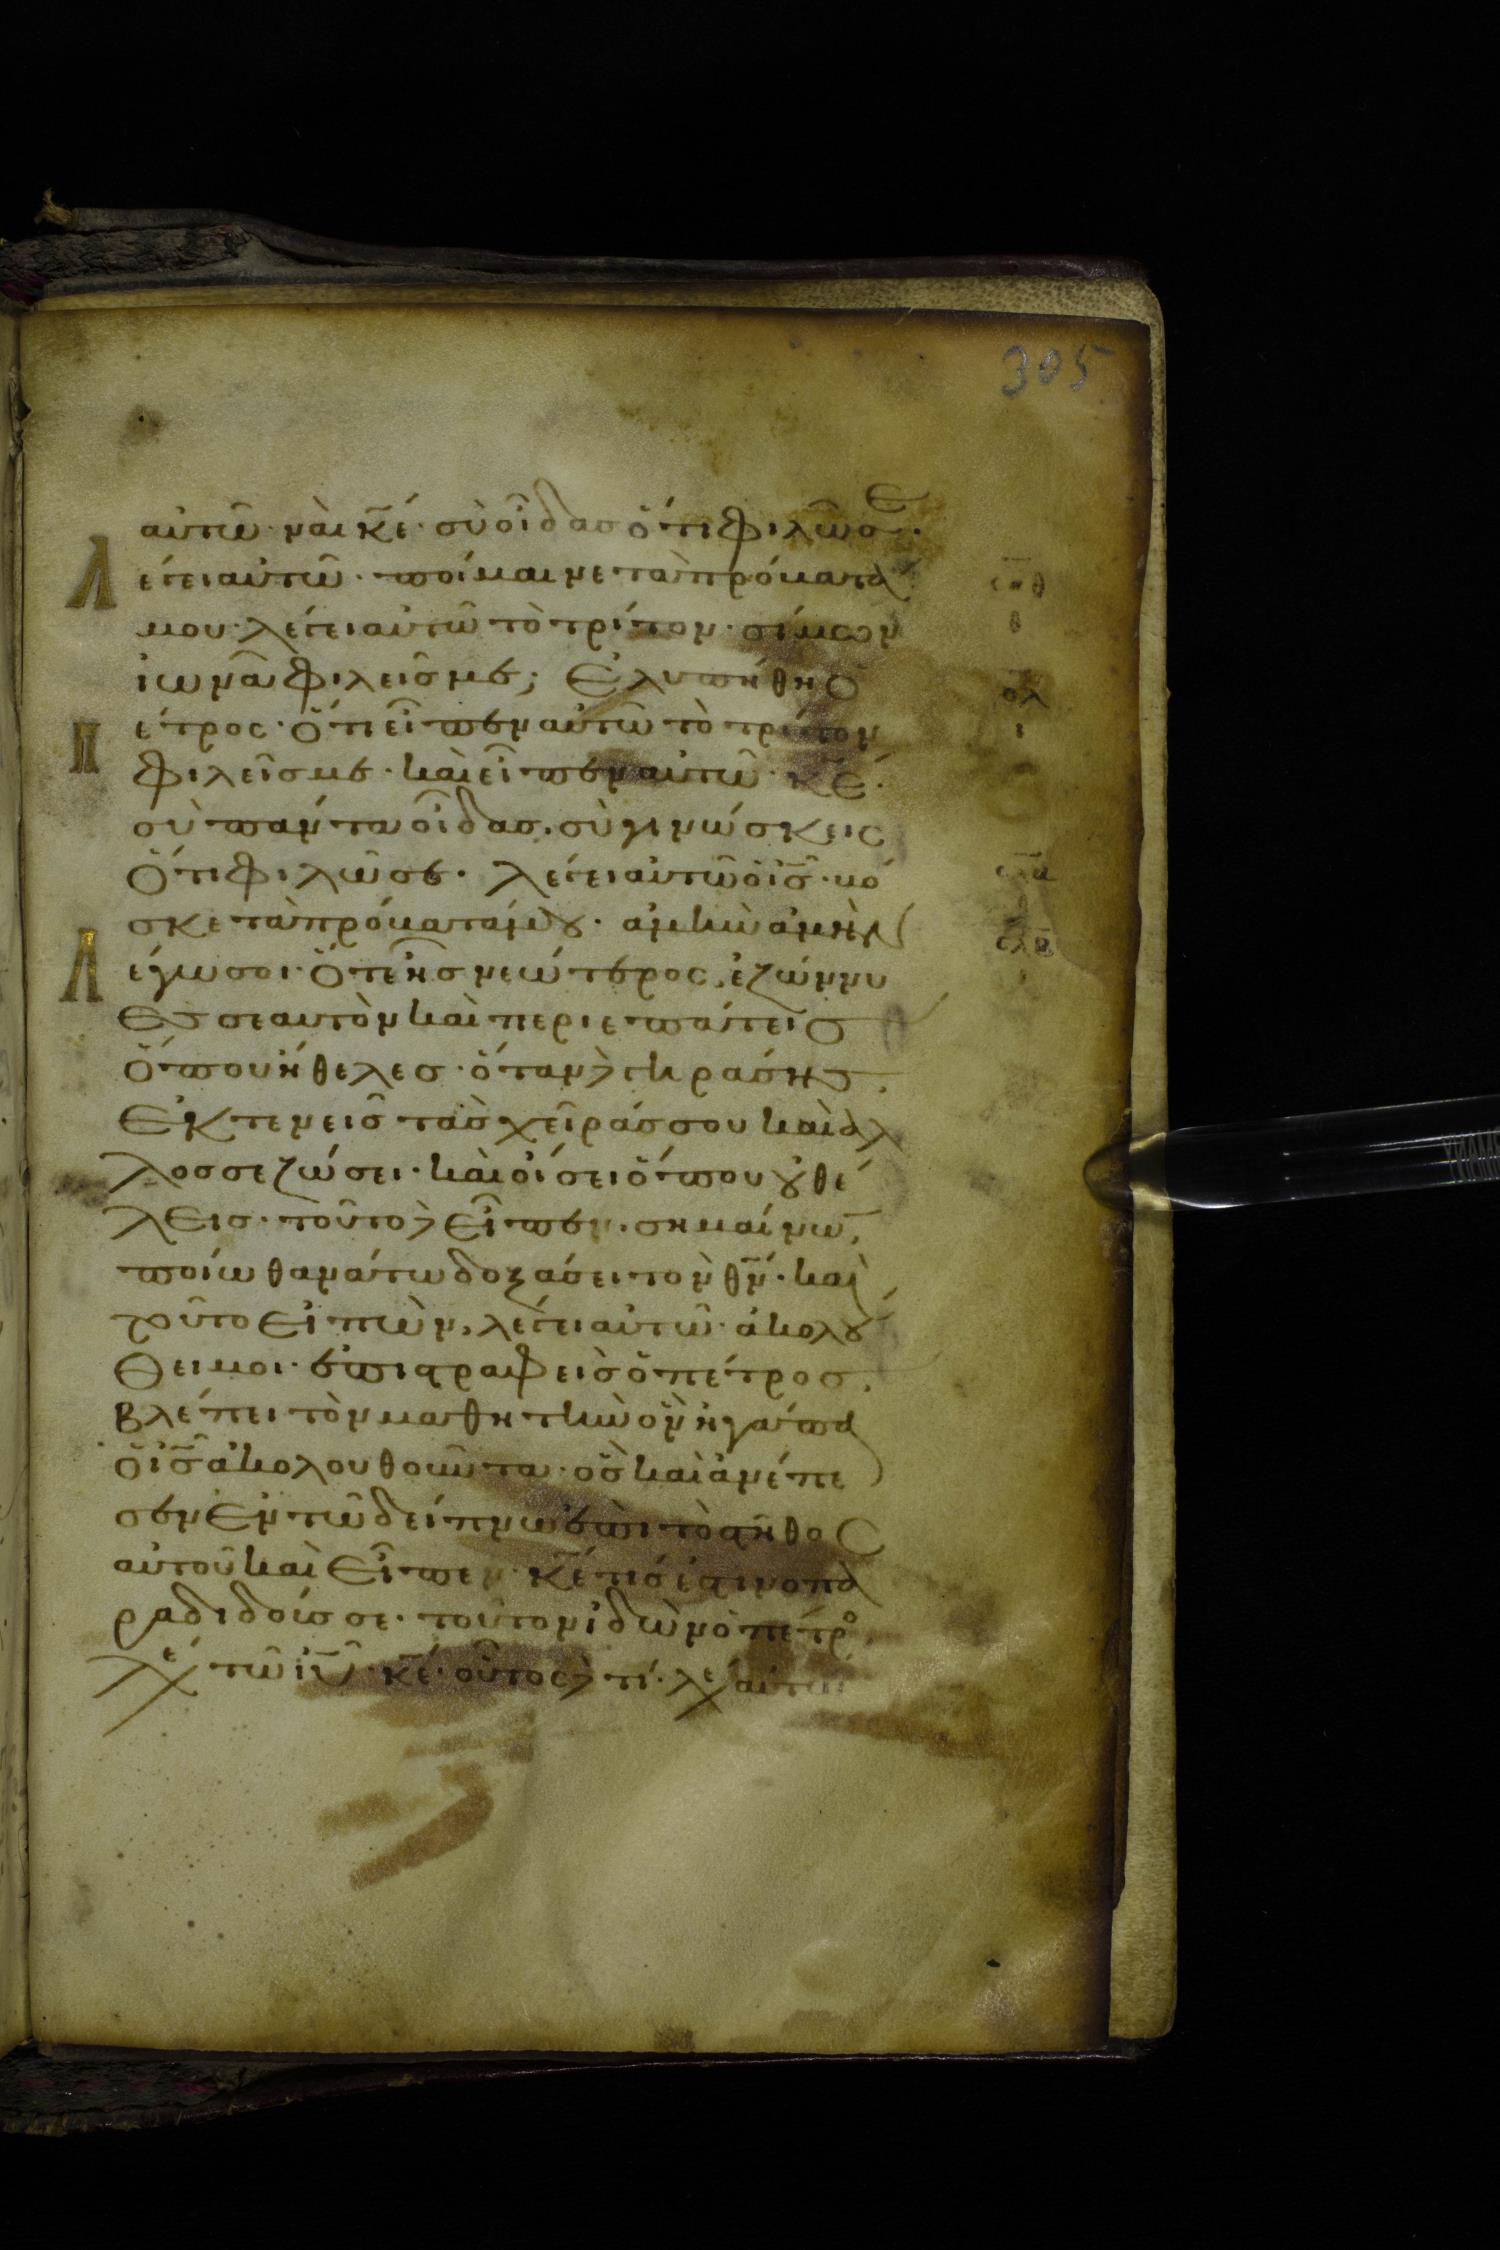 305
αὐτῶ· ναὶ κ̅έ· σὺ οἶδας ὅτι φιλῶ σε·
Λέγει αὐτῶ· ποίμαινε τὰ πρόβατά
μου· λέγει αὐτῶ τὸ τρίτον· σίμων
ἰωνᾶ φιλεῖς με; Ἐλυπήθη ὁ
Πέτρος· ὅτι εἶπεν αὐτῶ τὸ τρίτον
φιλεῖς με· καὶ εἶπεν αὐτῶ· κ̅έ·
σὺ πάντα οἶδας. σὺ γινώσκεις
ὅτι φιλῶ σε· λέγει αὐτῶ ὁ ἰ̅ς̅· βό
σκε τὰ πρόβατά μου· ἀμὴν ἀμὴν
Λέγω σοι· ὅτε ἦς νεώτερος, ἐζώννυ
ες σεαυτὸν καὶ περιεπάτεις
ὅπου ἤθελες· ὅταν δὲ γηράσης
ἐκτενεῖς τὰς χεῖράς σου καὶ ἄλ
λος σε ζώσει· καὶ οἴσει ὅπου οὐ θέ
λεις· τοῦτο δὲ εἶπεν. σημαίνων
ποίω θανάτω δοξάσει τὸν θ̅ν̅· καὶ
τοῦτο εἰπὼν, λέγει αὐτῶ· ἀκολού
θει μοι· ἐπιστραφεὶς ὁ πέτρος.
βλέπει τὸν μαθητὴν ὃν ἠγάπα
ὁ ἰ̅ς̅ ἀκολουθοῦντα· ὃς καὶ ἀνέπε
σεν ἐν τῶ δείπνω ἐπὶ τὸ στῆθος
αὐτοῦ καὶ εἶπεν κ̅έ τίς ἐστιν ὁ πα
ραδιδούς σε· τοῦτον ἰδὼν ὁ πέτρο
λέγ τῶ ἰ̅υ̅· κ̅έ· οὗτος δὲ τί· λέγ αὐτῶ